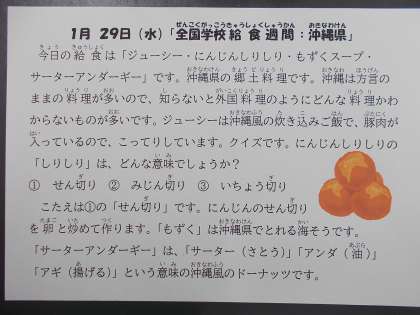 1月 29日（水）「全国学校給食週間：沖縄県」
今日の給食は「ジューシー・にんじんしりしり・もずくスープ・
サーターアンダーギー」です。沖縄県の郷土料理です。沖縄は方言の
ままの料理が多いので、知らないと外国料理のようにどんな料理かわ
からないものが多いです。ジューシーは沖縄風の炊き込みご飯で、豚肉が
入っているので、こってりしています。クイズです。にんじんしりしりの
「しりしり」は、どんな意味でしょうか？
① せん切り ② みじん切り ③ いちょう切り
こたえは①の「せん切り」です。にんじんのせん切り
を卵と炒めて作ります。「もずく」は沖縄県でとれる海そうです。
「サーターアンダーギー」は、「サーター（さとう）」「アンダ（油）」
「アギ（揚げる）」という意味の沖縄風のドーナッツです。